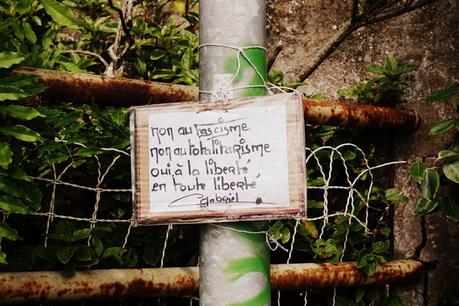 non au fascisme
non au totalitarisme
oui, à la liberté
en toute liberté
Gabriel